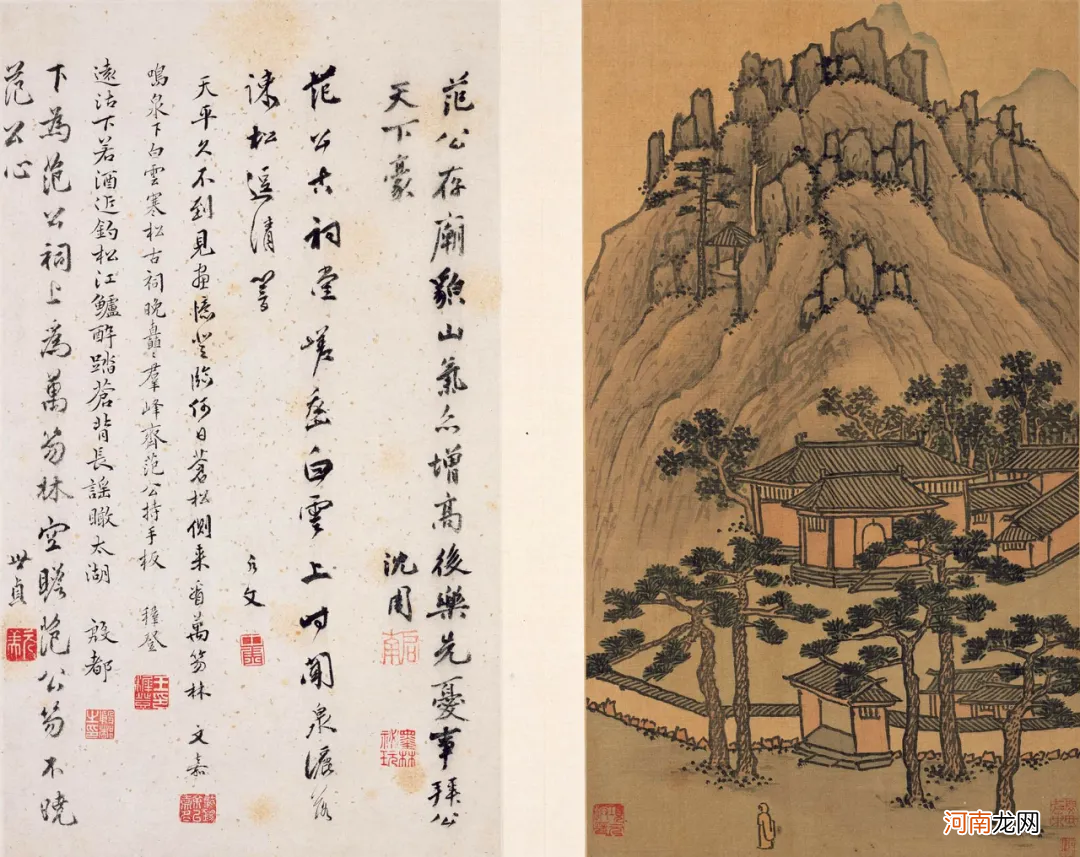 范公存廟貌山氣亦增高後樂先憂事拜公
天下豪 沈周
范公古祠堂嵯峨白雲上時聞泉漉落
松逗清響
天平久不到見畫憶登臨何日蒼松側来看萬笏林 文嘉
鳴泉下白雲寒松古祠晚矗〻羣峰齊范公持手板 穉登
遠沽下若酒近釣松江鱸醉踏蒼背長謠瞰太湖 殷都
下為范公祠上為萬笏林空瞻范公笏不曉
范公心 世貞
河南龙网